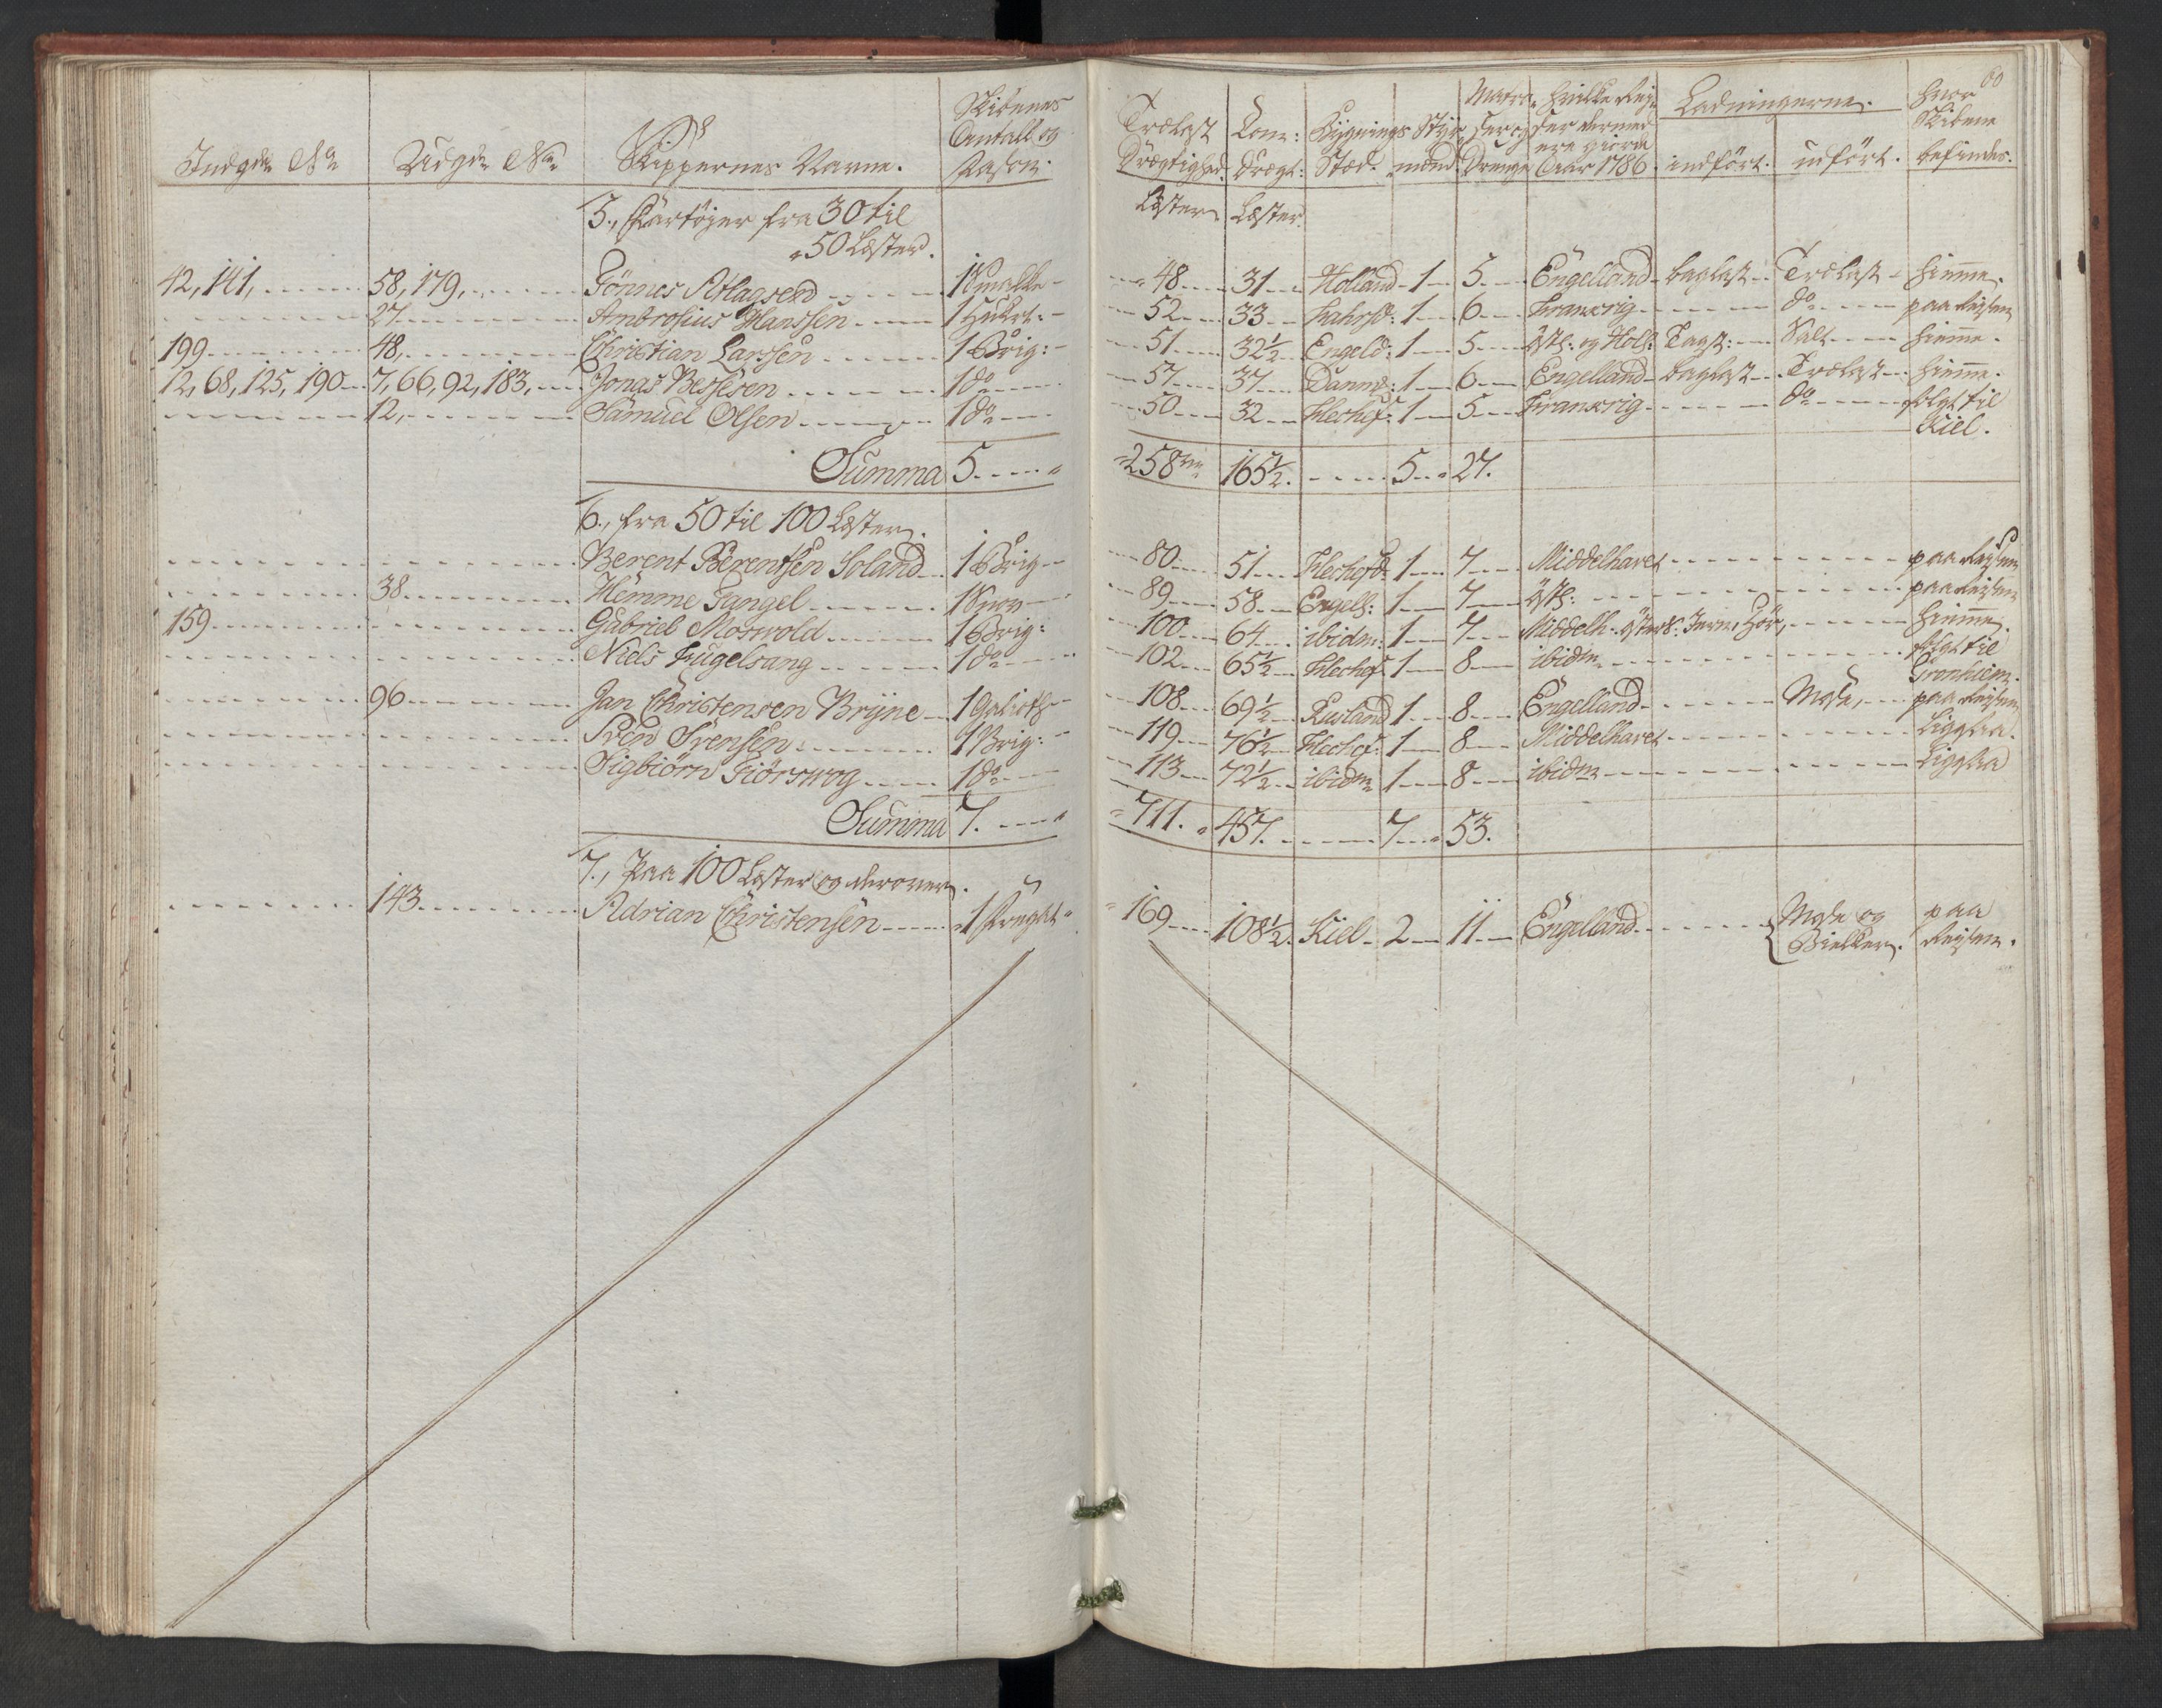 60
Indgde No Udgde No Skippernes Navne. Skibenes Antall og Fason. Trælast Drægtighed. Com: Drægt: Bygnings Stæd. Styr mænd Matro ser og Drenge Hvilke Rej ser dermed ere giorde Aar 1786. Ladningerne. indført. udført. hvor Skibene befindes.
Læster Læster
5., Fartøyer fra 30 til
50 Læster.
42, 141, 58, 179, Tönnes Atlagsen 1 Smakke 48 31 Holland 1 5 Engelland baglast Trælast hiemme.
27 Ambrosius Hanssen 1 Hukrt: 52 33 Fahrsd: 1 6 Frankrig do paa Reisen
199 48, Christian Larssen 1 Brig: 51 32½ Engeld: 1 5 Øst: og Hols: Tagst: Salt hiemme.
12, 68, 125, 190 7, 66, 92, 183, Jonas Bessesen 1 do 57 37 Danmd: 1 6 Engelland baglast Trælast hiemme.
12, Samuel Olsen 1 do 50 32 Flechef: 1 5 Frankrig do solgt til
Kiel.
Summa 5. 258 165½. 5 27.
6., fra 50 til 100 Læster.
Berent Berentsen Soland 1 Brig 80 51 Flechefd: 1 7 Middelhavet paa Reisen
38 Hemme Tangel 1 Snow 89 58 Engels: 1 7 Øst: paa Reisen
159 Gabriel Moswold 1 Brig: 100 64 ibidm: 1 7 Middelh: Østers: Jern, Hör, hiemme.
Niels Fugelsang 1 do 102 65½ Flechef 1 8 ibidm solgt til
Tronhiem.
96 Jan Christensen Bryne 1 Galioth 108 69½ Rusland 1 8 Engelland Mste, paa Reisen
Sven Svensen 1 Brig: 119 76½ Flechef: 1 8 Middelhavet Ligger.
Sigbiörn Fiörswog 1 do 113 72½ ibidm 1 8 ibidm Ligger
Summa 7. 711. 457. 7 53.
7., Paa 100 Læster og derover.
143 Adrian Christensen 1 Fregat 169 108½. Kiel 2 11 Engelland Mste og paa
Bielker. Reisen.